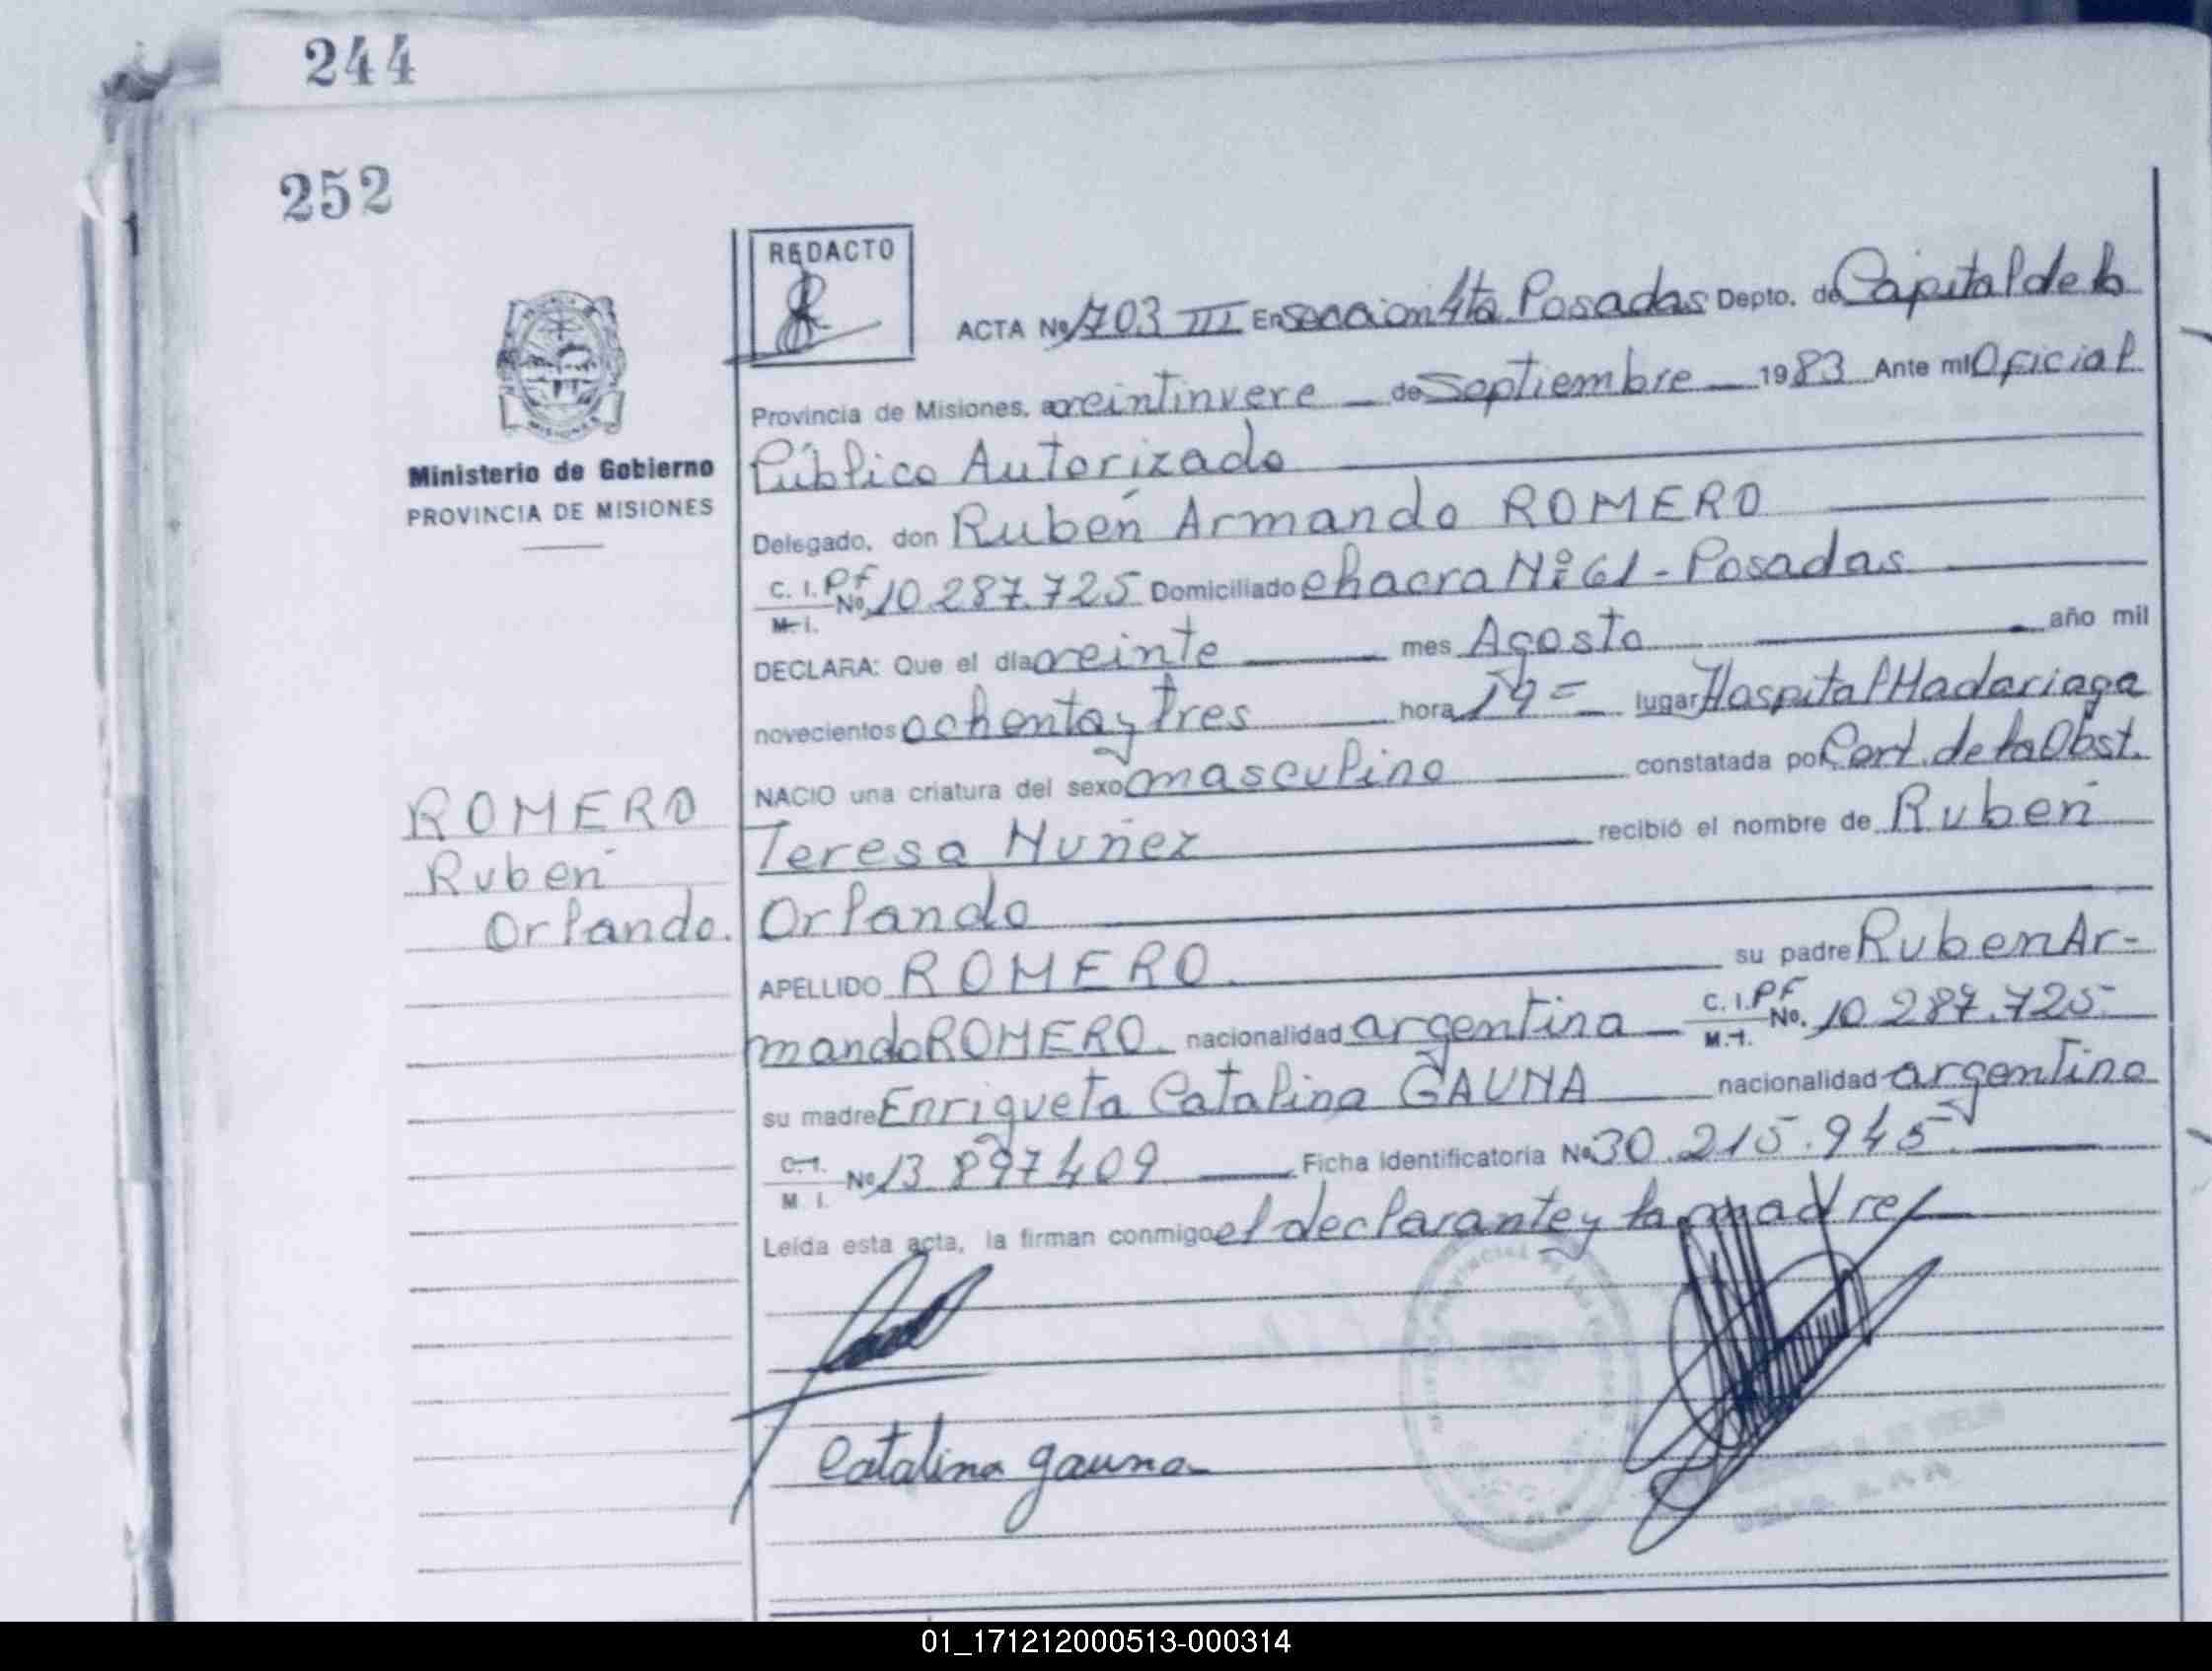 244
252
REDACTO
ACTA Nº 703 III En Seccion 4ta Posadas Depto. de Capital de la
Provincia de Misiones, a veintinueve de Septiembre 1983 Ante mi Oficial
Público Autorizado
Ministerio de Gobierno
PROVINCIA DE MISIONES
Delegado, don Rubén Armando ROMERO
C. I. PF Nº 10.287.725 Domiciliado chacra Nº 61 - Posadas
M. I.
DECLARA: Que el día veinte mes Agosto año mil
novecientos ochenta y tres hora 19= lugar Hospital Madariaga
NACIO una criatura del sexo masculino constatada por Cert. de la Obst.
Teresa Nuñez recibió el nombre de Rubén
Orlando
ROMERO
Rubén
Orlando.
APELLIDO ROMERO su padre Ruben Ar-
mando ROMERO nacionalidad argentina C. I. PF No. 10.287.725
M. I.
su madre Enriqueta Catalina GAUNA nacionalidad argentina
C. I. Nº 13.897409 Ficha Identificatoria Nº 30.215.945
M. I.
Leída esta acta, la firman conmigo el declarante y la madre
Catalina gauna
01_171212000513-000314